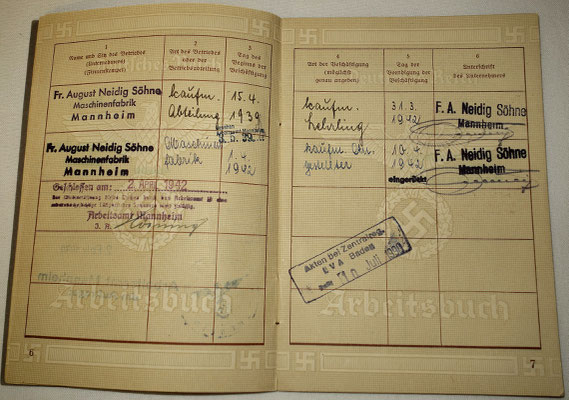 1
Name und Sitz des Betriebes
(Unternehmers)
(Firmenstempel)
2
Art des Betriebes
oder der
Betriebsabteilung
3
Tag des
Beginns der
Beschäftigung
Fr. August Neidig Söhne
Maschinenfabrik
Mannheim
kaufm.
Abteilung
15.4.
1939
Fr. August Neidig Söhne
Maschinenfabrik
Mannheim
Maschinen
fabrik
1.4.
1942
Geschlossen am: 2. APR. 1942
Arbeitsamt Mannheim
Arbeitsbuch
6
4
Art der Beschäftigung
(möglichst
genau angeben)
5
Tag der
Beendigung der
Beschäftigung
6
Unterschrift
des Unternehmers
kaufm.
Lehrling
31.3.
1942
F. A. Neidig Söhne
Mannheim
kaufm. An-
gestellter
10.4.
1942
eingerückt
F. A. Neidig Söhne
Mannheim
Akten bei Zentralreg.
EVA Baden
Arbeitsbuch
7